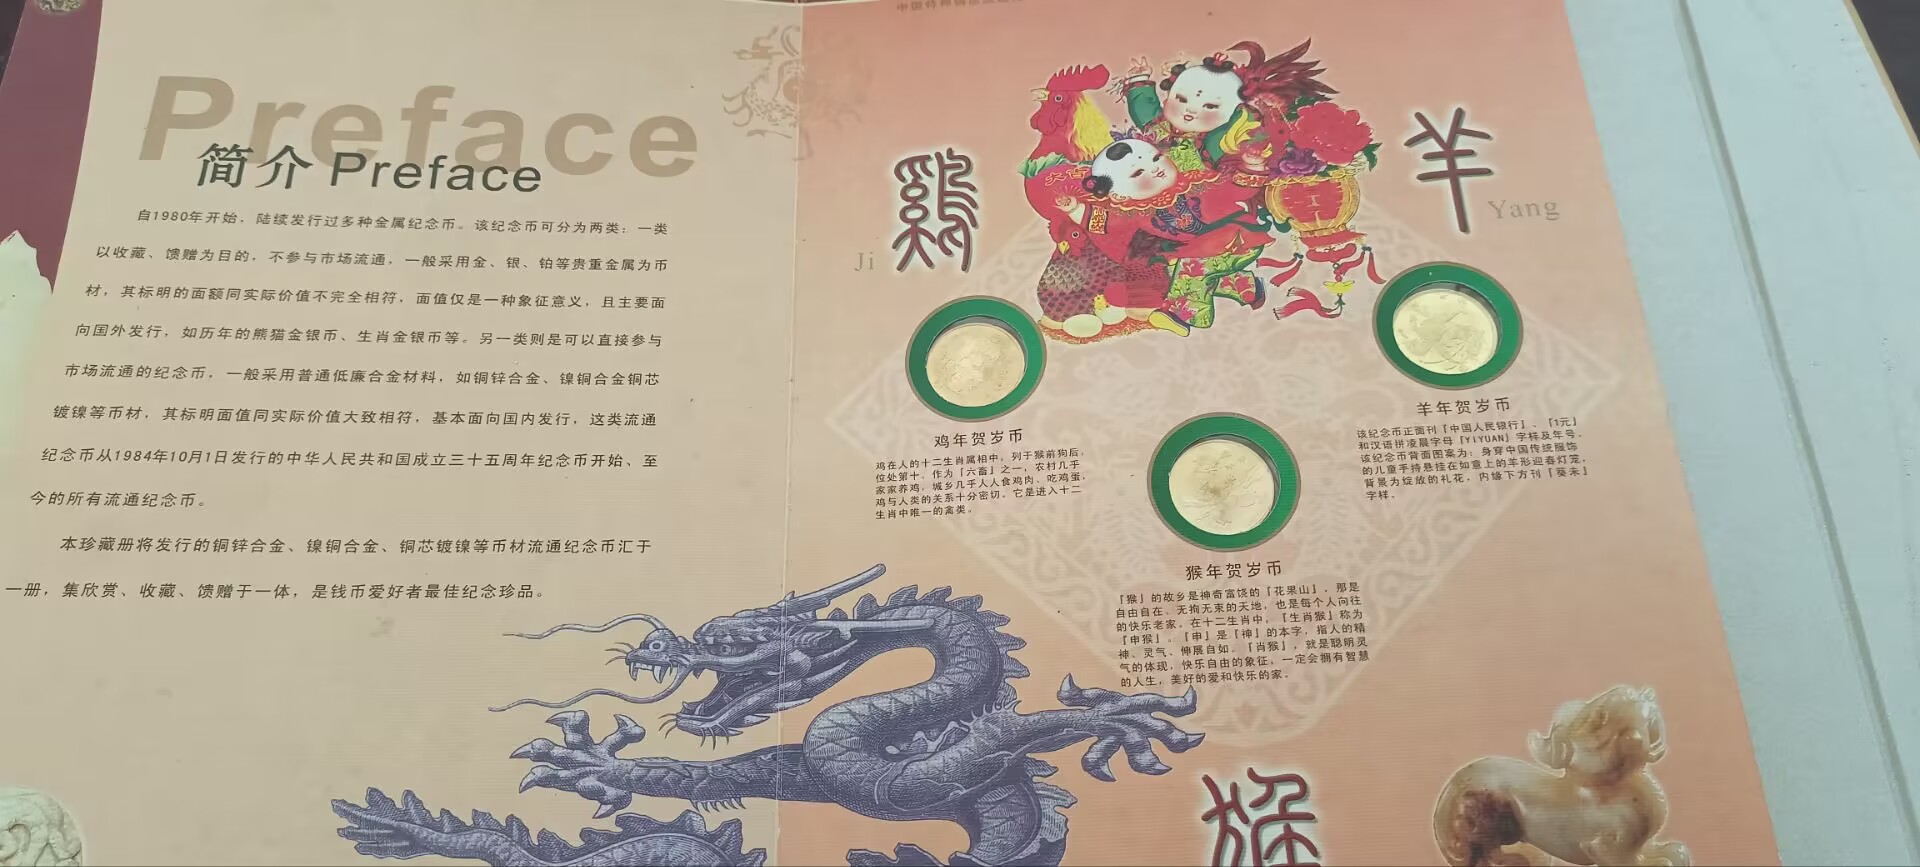 Preface
简介 Preface
自1980年开始，陆续发行过多种金属纪念币。该纪念币可分为两类：一类
以收藏、馈赠为目的，不参与市场流通，一般采用金、银、铂等贵重金属为币
材，其标明的面额同实际价值不完全相符，面值仅是一种象征意义，且主要面
向国外发行，如历年的熊猫金银币、生肖金银币等。另一类则是可以直接参与
市场流通的纪念币，一般采用普通低廉合金材料，如铜锌合金、镍铜合金铜芯
镀镍等币材，其标明面值同实际价值大致相符，基本面向国内发行，这类流通
纪念币从1984年10月1日发行的中华人民共和国成立三十五周年纪念币开始、至
今的所有流通纪念币。
本珍藏册将发行的铜锌合金、镍铜合金、铜芯镀镍等币材流通纪念币汇于
一册，集欣赏、收藏、馈赠于一体，是钱币爱好者最佳纪念珍品。
鷄
Ji
羊
Yang
鸡年贺岁币
鸡在人的十二生肖属相中，列于猴前狗后，
位处第十。作为「六畜」之一，农村几乎
家家养鸡，城乡几乎人人食鸡肉、吃鸡蛋，
鸡与人类的关系十分密切。它是进入十二
生肖中唯一的禽类。
羊年贺岁币
该纪念币正面刊「中国人民银行」、「1元」
和汉语拼凌晨字母「YIYUAN」字样及年号。
该纪念币背面图案为：身穿中国传统服饰
的儿童手持悬挂在如意上的羊形迎春灯笼，
背景为绽放的礼花，内缘下方刊「葵未」
字样。
猴年贺岁币
「猴」的故乡是神奇富饶的「花果山」，那是
自由自在、无拘无束的天地，也是每个人向往
的快乐老家。在十二生肖中，「生肖猴」称为
「申猴」。「申」是「神」的本字，指人的精
神、灵气、伸展自如。「肖猴」，就是聪明灵
气的体现，快乐自由的象征，一定会拥有智慧
的人生，美好的爱和快乐的家。
猴